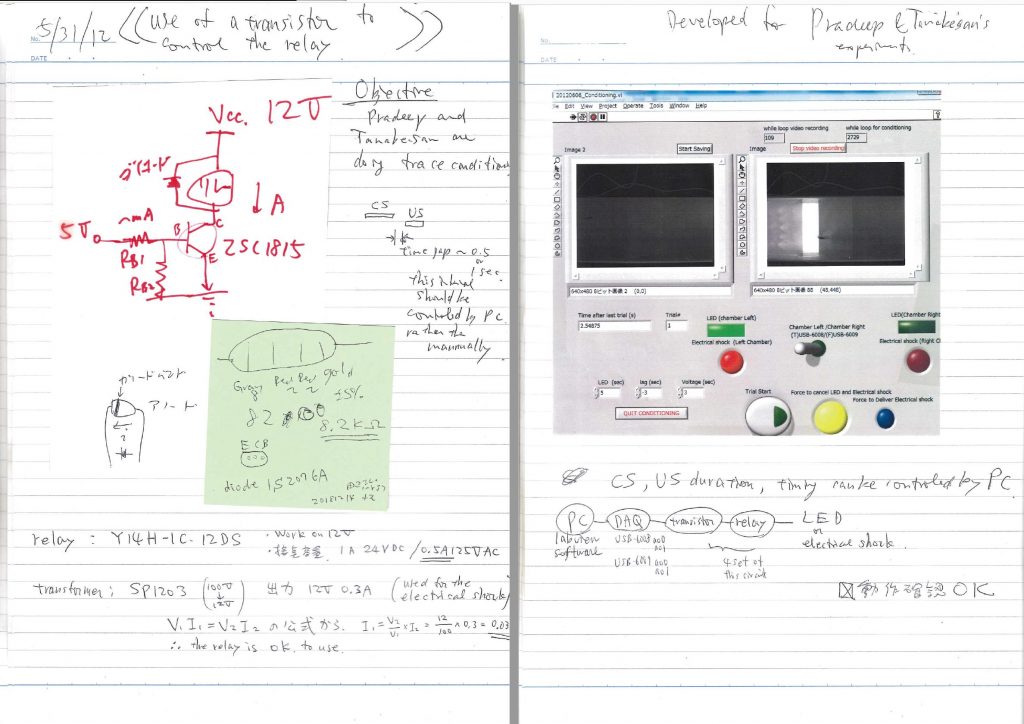 No. 5/31/12 《Use of a transistor to
control the relay 》
DATE
Objective
Pradeep and
Tanakesan are
doing trace condition
CS
US
time gap ~ 0.5
or
1 sec
this interval
should be
controled by PC.
rather than
manually
Vcc. 12V
↓ A
~mA
5V
B
C
E
2SC1815
RB1
RB2
カソードマーク
アノード
Gray Red Red gold
8 2 2 ±5%
82 00
8.2kΩ
E C B
diode 1S2076A
relay : Y14H-1C-12DS
・Work on 12V
・接点容量 1A 24VDC / 0.5A 125VAC
transformer : SP1203 (100V ↓ 12V) 出力 12V 0.3A (used for the electrical shock)
V1 I1 = V2 I2 の公式から. I1 = V2/V1 × I2 = 12/100 × 0.3 = 0.03
∴ the relay is ok to use.
Developed for Pradeep & Tanakesan's
experiments.
No.
DATE
20120606_Conditioning.vi
File Edit View Project Operate Tools Window Help
while loop video recording
109
while loop for conditioning
2729
Image 2
Start Saving
Image
Stop video recording
640x480 8ビット画像 2 (0,0)
640x480 8ビット画像 88 (48,448)
Time after last trial (s)
2.54875
Trial#
1
LED (chamber Left)
Electrical shock (Left Chamber)
Chamber Left /Chamber Right
(T)USB-6008/(F)USB-6009
LED(Chamber Right
Electrical shock (Right C
LED (sec)
5
lag (sec)
-3
Voltage (sec)
3
QUIT CONDITIONING
Trial Start
Force to cancel LED and Electrical shock
Force to Deliver Electrical shock
CS, US duration, timing can be controled by PC.
PC DAQ transistor relay LED
or
electrical shock.
labview
software
USB-6008 ao0
ao1
USB-6009 ao0
ao1
4 set of
this circuit
動作確認 OK